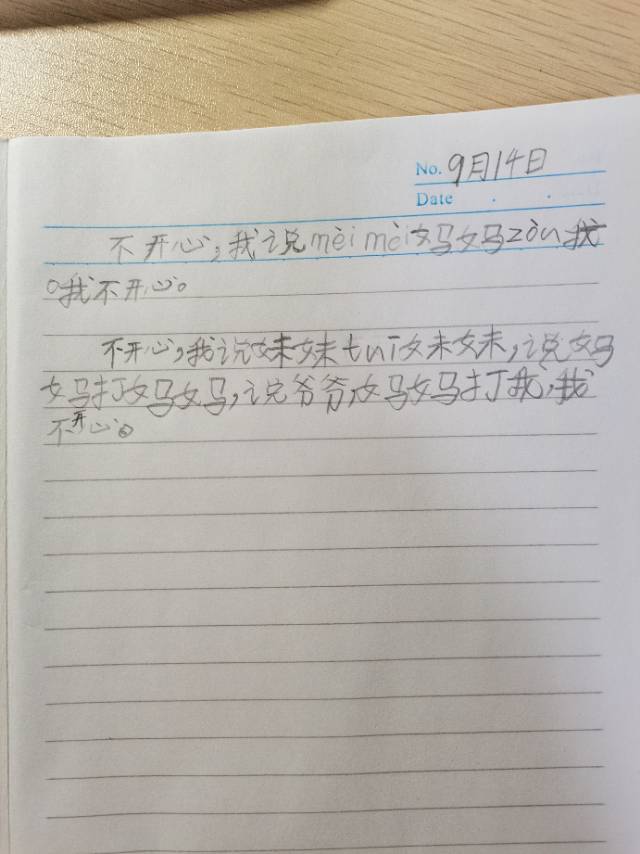 No. 9月14日
Date
不开心,我说mèi mèi妈妈zòu我
。我不开心。
不开心,我说妹妹tuī妹妹,说妈
妈打妈妈,说爷爷,妈妈打我,我
不开心。